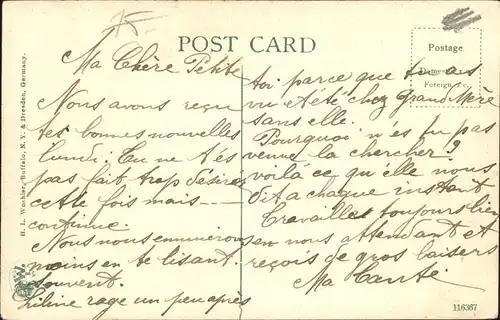 POST CARD
Postage
Domestic 1c.
Foreign 2c.
Ma Chère Petite
Nous avons reçu
tes bonnes nouvelles
lundi; Tu ne t'es
pas fait trop désirer
cette fois mais —
continue.
Nous nous ennuierons
moins en te lisant
souvent.
rage un peu après
toi parce que tu as
vu et été chez Grand Mère
sans elle.
Pourquoi n'es tu pas
venue la chercher?
voilà ce qu'elle nous
dit a chaque instant
Travailles toujours bien
en nous attendant et
reçois de gros baisers
Ma Tante
H. L. Woehler, Buffalo, N. Y. & Dresden, Germany.
116367